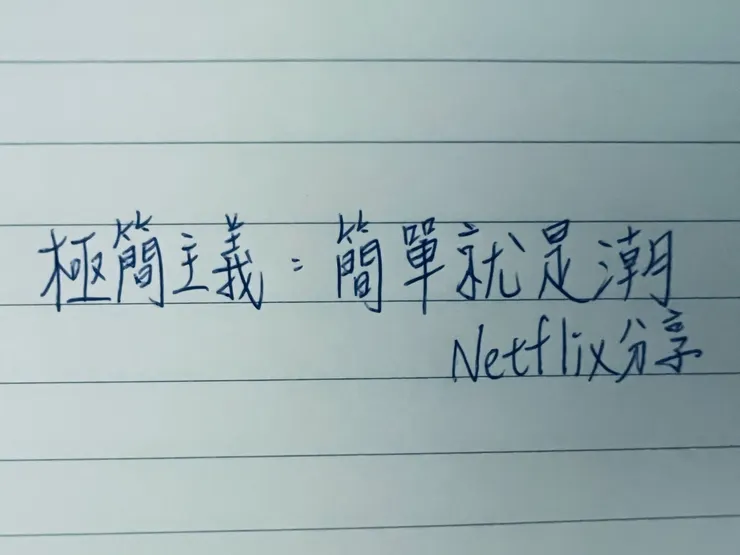 極簡主義：簡單就是潮
Netflix分享